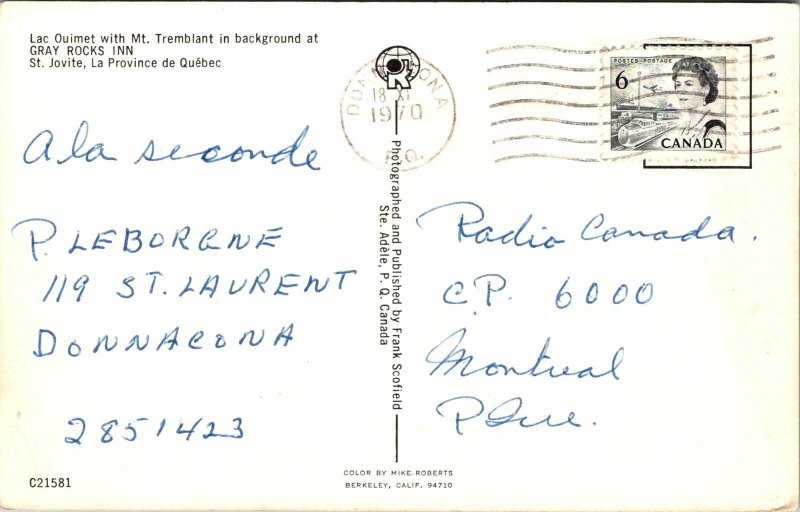 Lac Ouimet with Mt. Tremblant in background at
GRAY ROCKS INN
St. Jovite, La Province de Québec
A la seconde
P. LEBORGNE
119 ST. LAURENT
DONNACONA
2851423
C21581
DONNACONA
18 XI
1970
P.Q.
Photographed and Published by Frank Scofield
Ste. Adèle, P. Q. Canada
COLOR BY MIKE ROBERTS
BERKELEY, CALIF. 94710
POSTES-POSTAGE
6
CANADA
Radio Canada.
C.P. 6000
Montreal